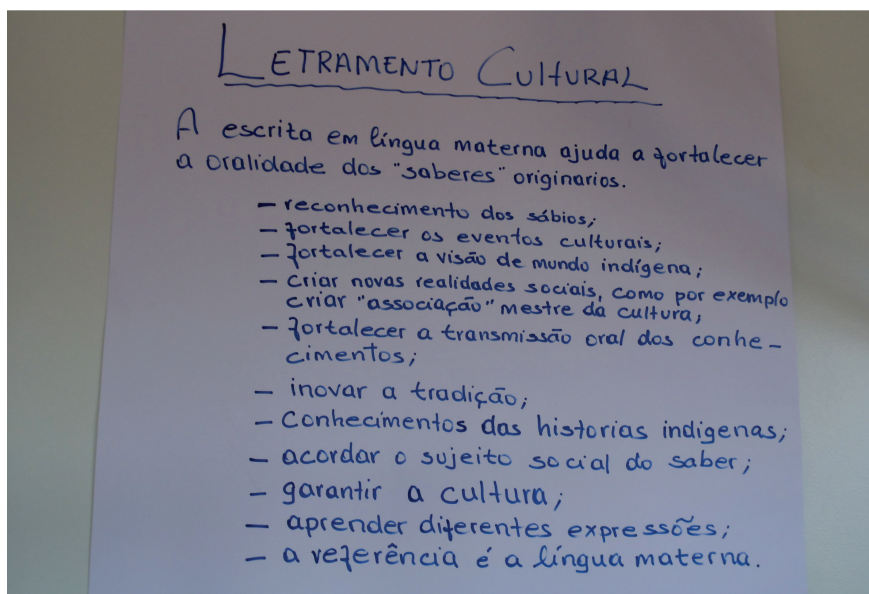 LETRAMENTO CULTURAL
A escrita em língua materna ajuda a fortalecer
a oralidade dos "saberes" originarios.
- reconhecimento dos sábios;
- fortalecer os eventos culturais;
- fortalecer a visão de mundo indígena;
- criar novas realidades sociais, como por exemplo
criar "associação" mestre da cultura;
- fortalecer a transmissão oral dos conhe-
cimentos;
- inovar a tradição;
- conhecimentos das historias indigenas;
- acordar o sujeito social do saber;
- garantir a cultura;
- aprender diferentes expressões;
- a referência é a língua materna.